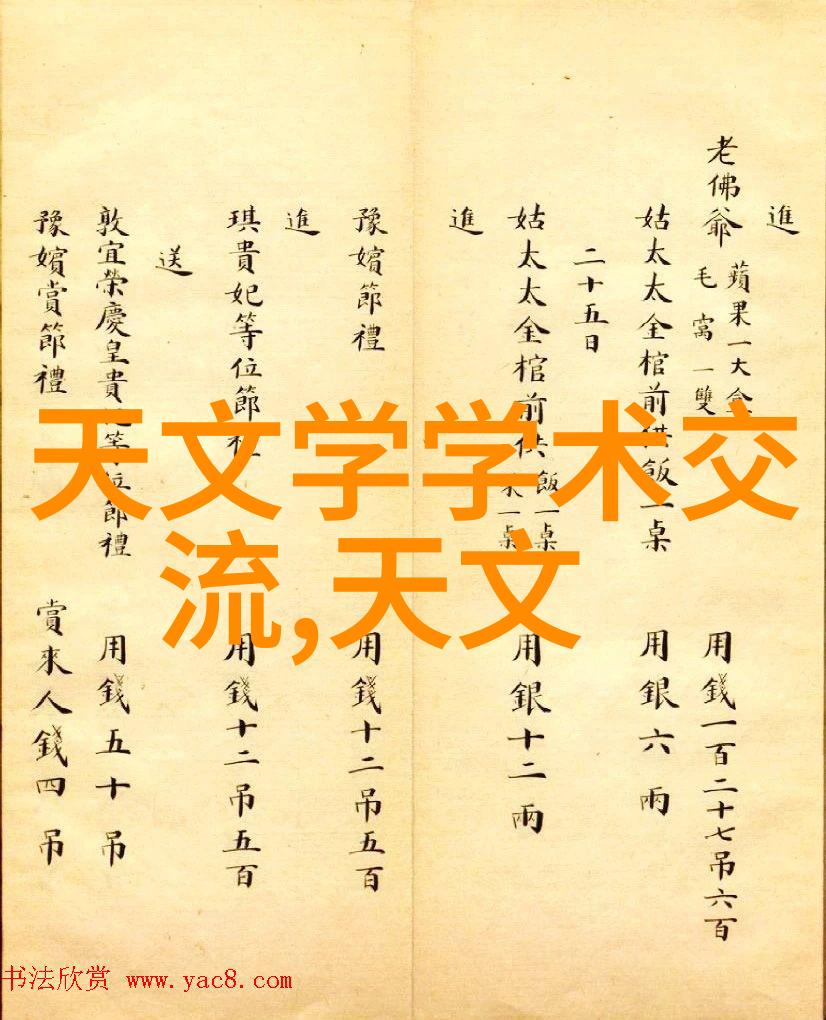 進
老佛爺 蘋果一大盒 毛窩一雙 用錢一百二十七吊六百
姑太太金棺前供飯一桌 用銀六兩
二十五日
姑太太金棺前供飯一桌 果一桌 用銀十二兩
進
豫嬪節禮 用錢十二吊五百
進
琪貴妃等位節禮 用錢十二吊五百
送
敦宜榮慶皇貴妃等位節禮 用錢五十吊
豫嬪賞節禮 賞來人錢四吊
天文学学术交
流,天文
书法欣赏 www.yac8.com